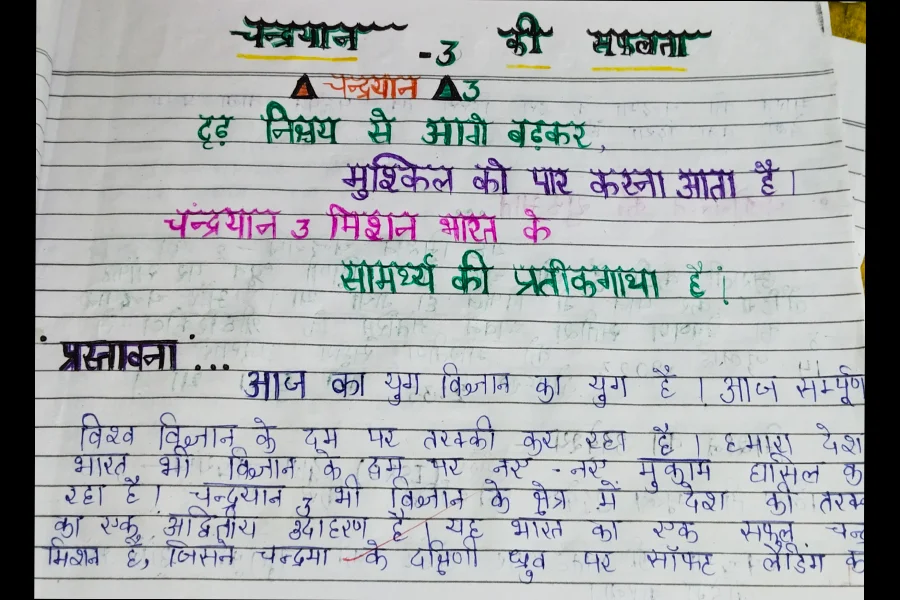 चन्द्रयान -3 की सफलता
चन्द्रयान 3
दृढ़ निश्चय से आगे बढ़कर,
मुश्किल को पार करना आता है।
चंन्द्रयान 3 मिशन भारत के
सामर्थ्य की प्रतीकगाथा है।
प्रस्तावना ...
आज का युग विज्ञान का युग है। आज सम्पूर्ण
विश्व विज्ञान के दम पर तरक्की कर रहा है। हमारा देश
भारत भी विज्ञान के दम पर नए -नए मुकाम हासिल क
रहा है। चन्द्रयान 3 भी विज्ञान के क्षेत्र में देश की तरक
का एक अद्वितीय उदाहरण है। यह भारत का एक सफल चन्द्र
मिशन है, जिसने चन्द्रमा के दक्षिणी ध्रुव पर सॉफ्ट लैंडिंग क